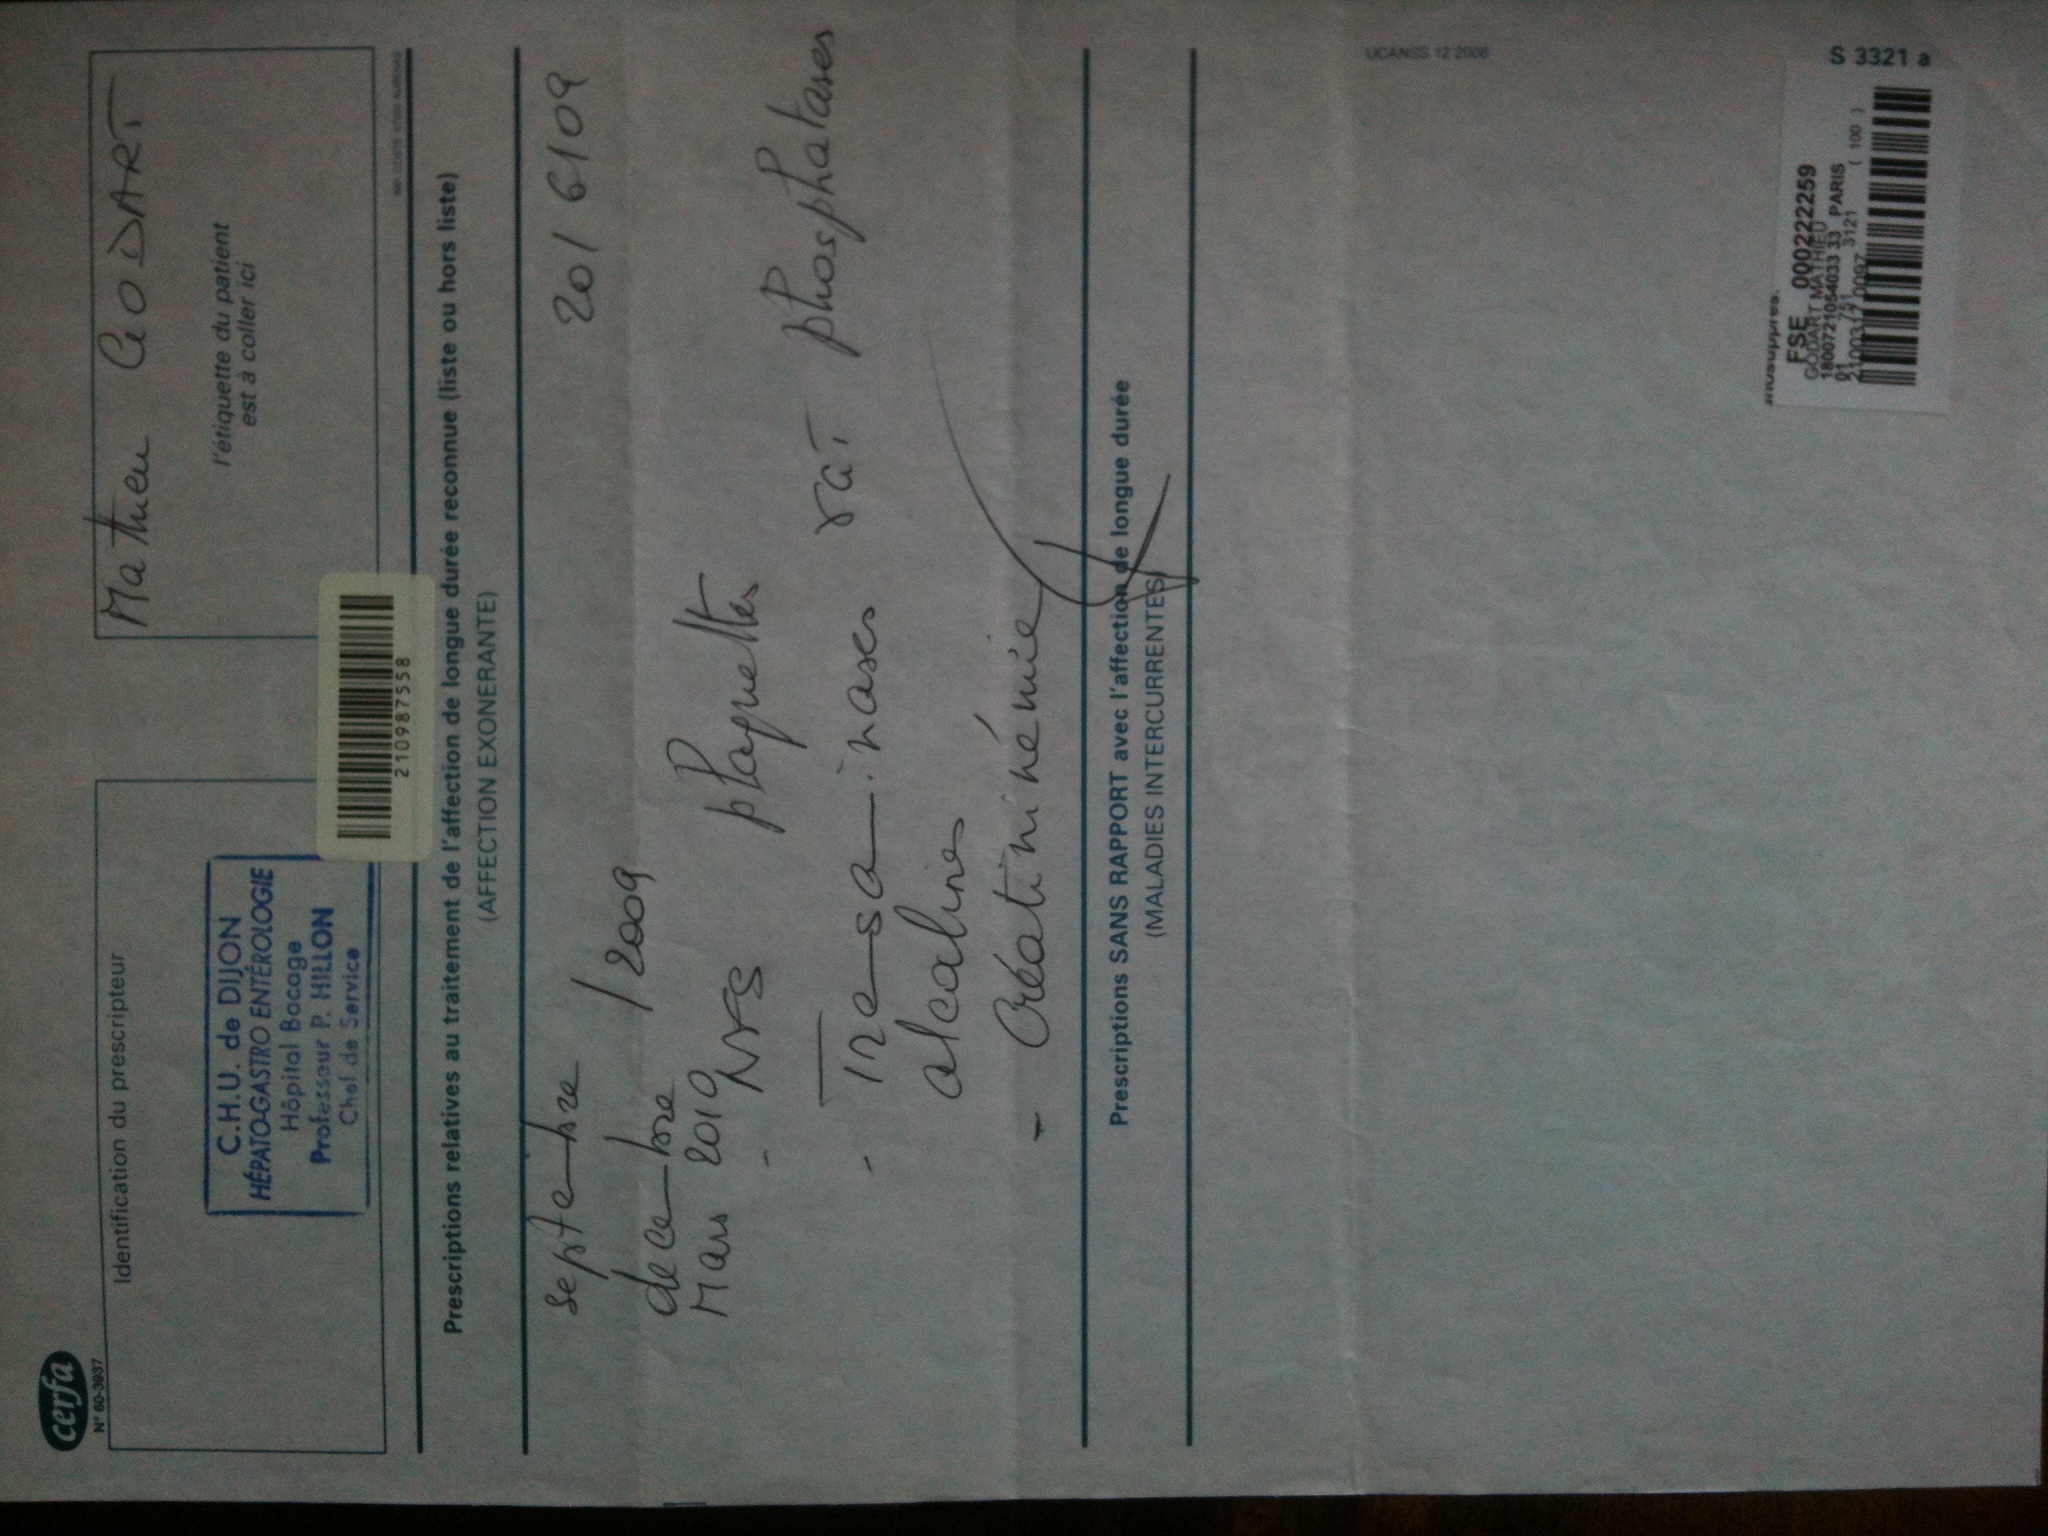 cerfa
N° 60-3937
Identification du prescripteur
C.H.U. de DIJON
HÉPATO-GASTRO ENTÉROLOGIE
Hôpital Bocage
Professeur P. HILLON
Chef de Service
Mathieu GODART
l'étiquette du patient
est à coller ici
210987558
Prescriptions relatives au traitement de l'affection de longue durée reconnue (liste ou hors liste)
(AFFECTION EXONERANTE)
septembre
20/6/09
decembre /2009
Mars 2010
- NFS plaquettes
- Transaminases γGT phosphatases
alcalines
- Créatininémie
Prescriptions SANS RAPPORT avec l'affection de longue durée
(MALADIES INTERCURRENTES)
UCANSS 12 2006
FSE 000222259
GODART MATHIEU
1800721054033 33 PARIS
01 751 3121 ( 100 )
2100317 0097
S 3321 a